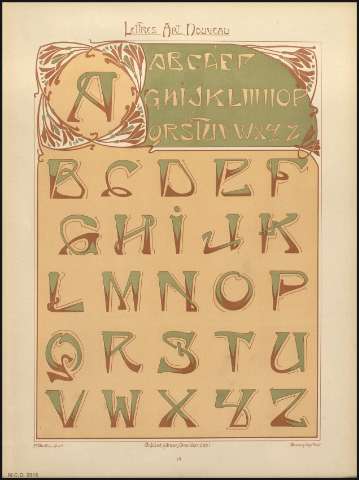 LETTRES ART NOUVEAU
A
ABCDEF
GHIJKLMNOP
QRSTUVWXYZ
BCDEF
GHIJK
LMNOP
QRSTU
VWXYZ